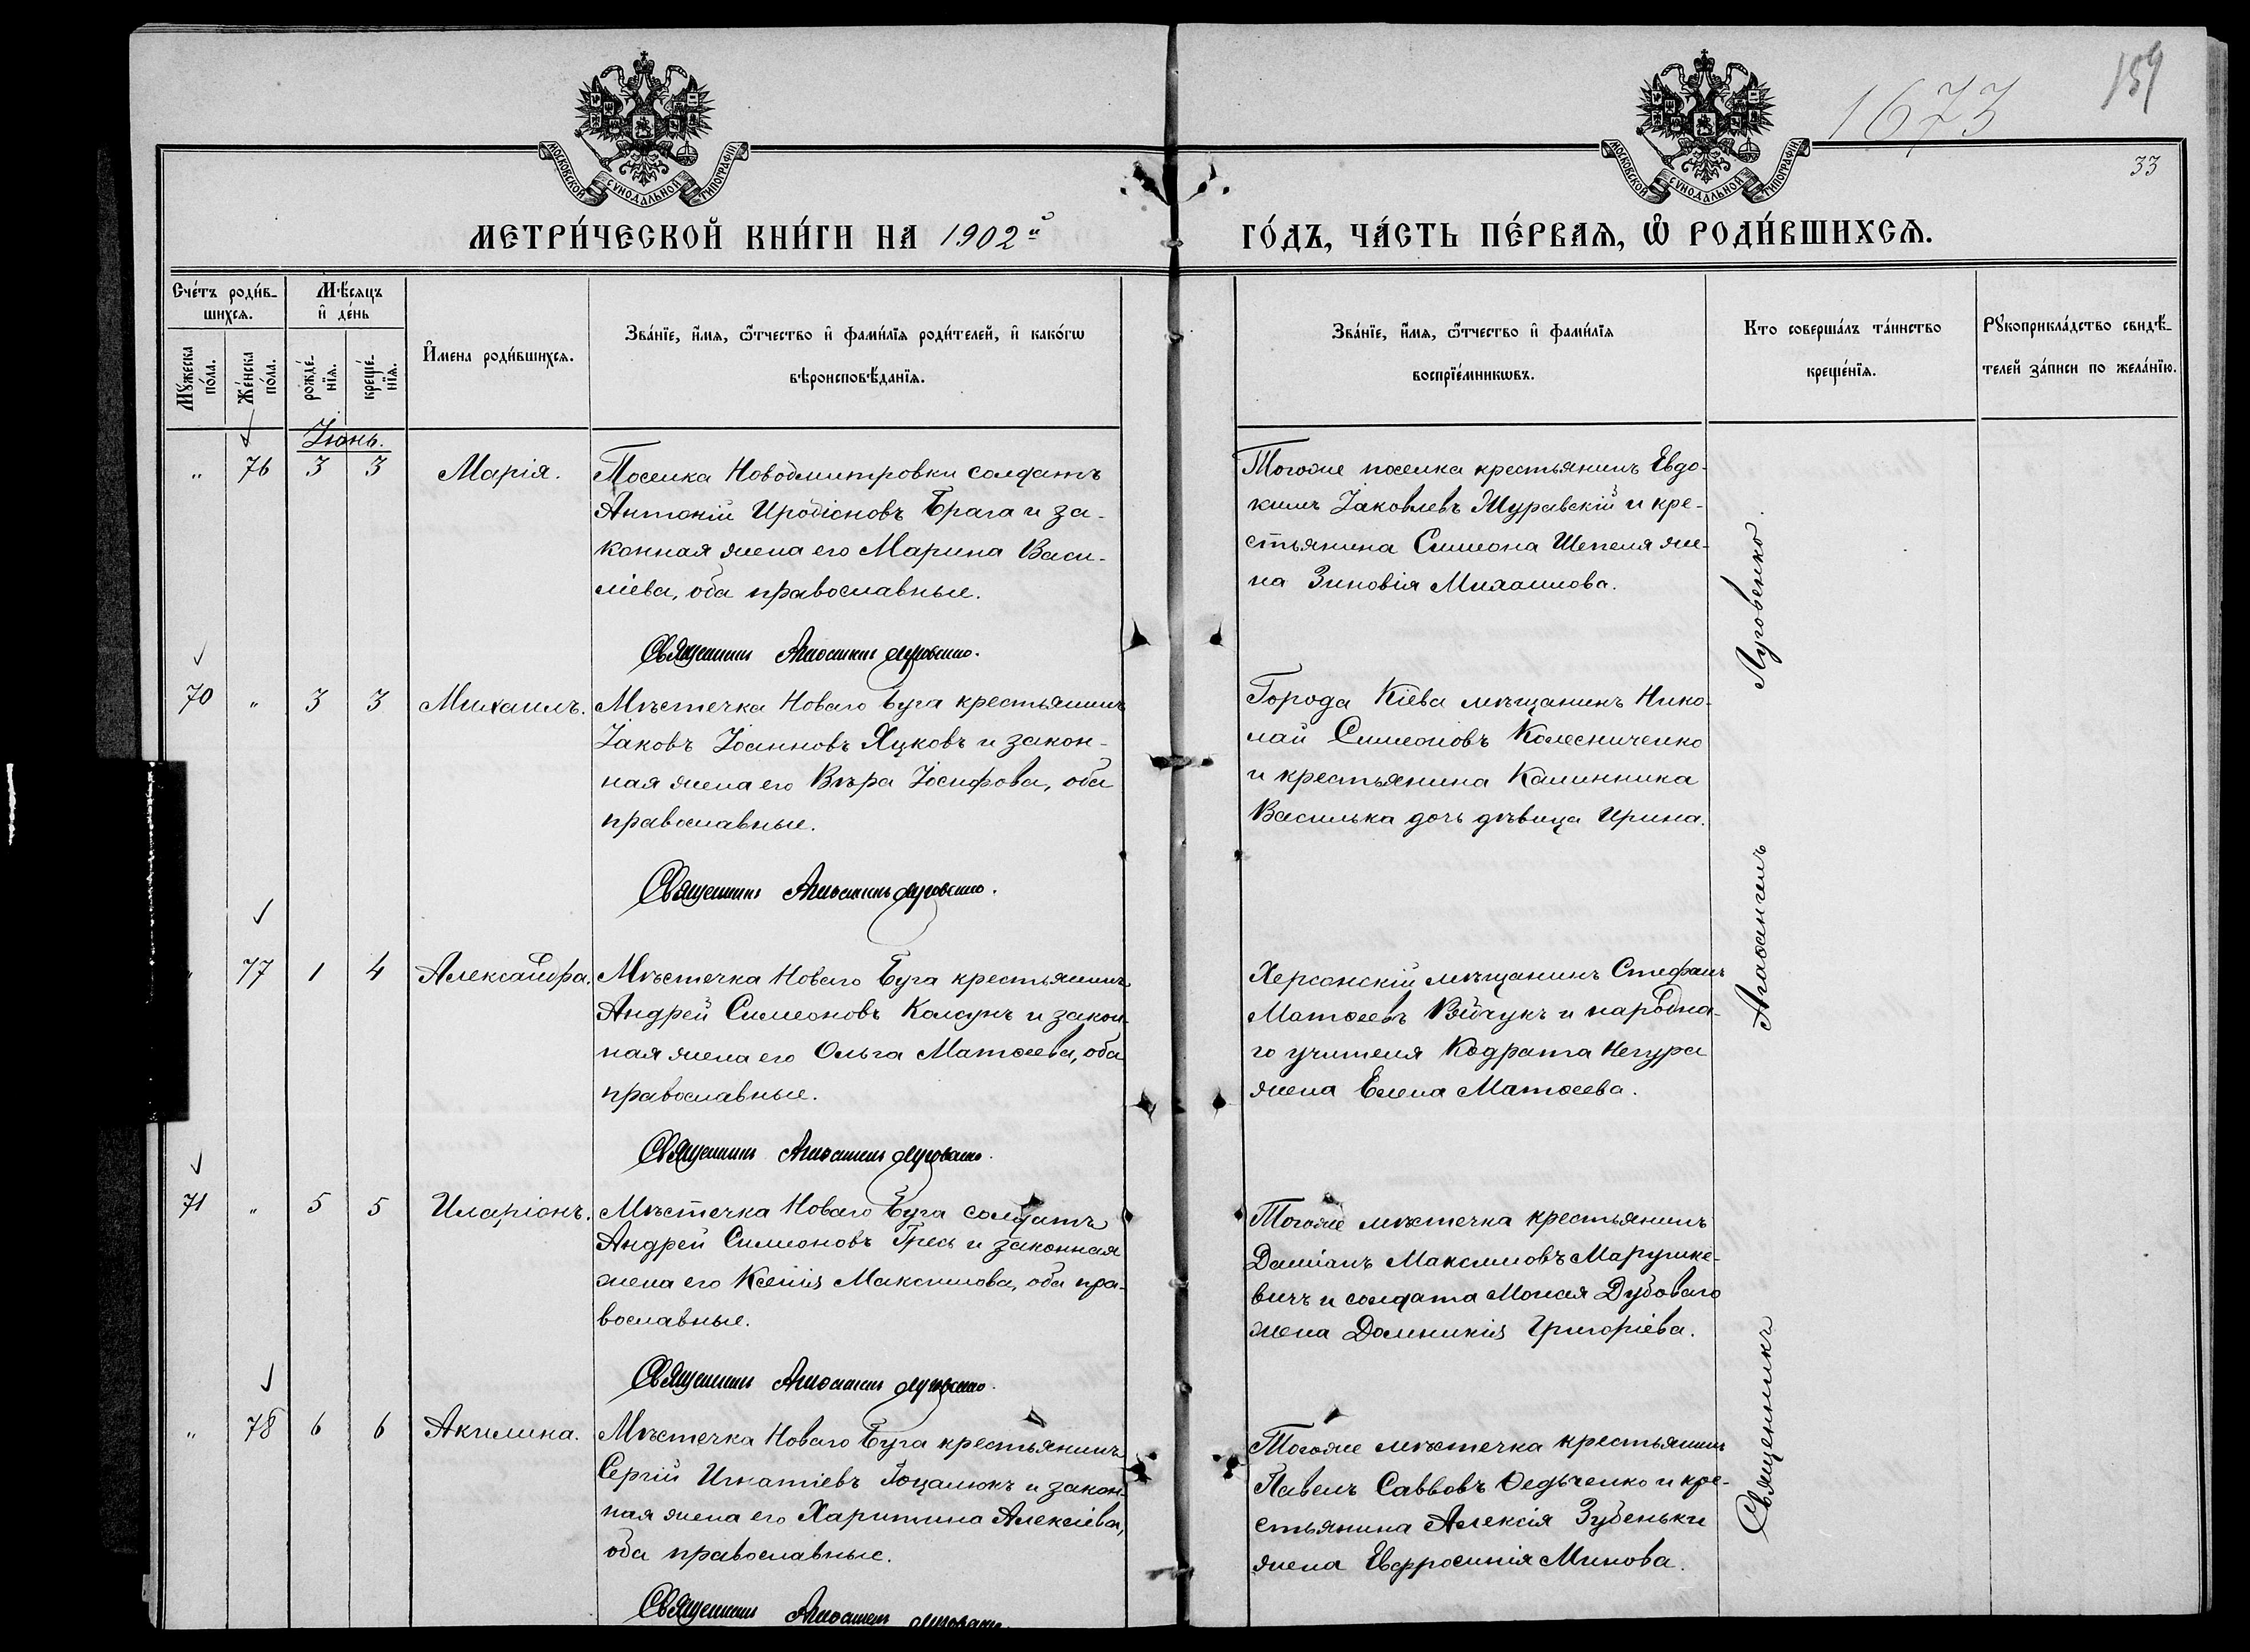 159
1673
33
МОСКОВСКОЙ СѴНОДАЛЬНОЙ ТИПОГРАФІИ
МОСКОВСКОЙ СѴНОДАЛЬНОЙ ТИПОГРАФІИ
МЕТРИ́ЧЕСКОЙ КНИ́ГИ НА 1902й
ГО́ДЪ, ЧА́СТЬ ПЕ́РВАѦ, Ѡ҆ РОДИ́ВШИХСѦ.
Сче́тъ роди́в-
шихсѧ.
Мꙋ́жеска по́ла.
Же́нска по́ла.
Мѣ́сѧцъ
и҆ де́нь
рожде́-
нїѧ.
креще́-
нїѧ.
И҆мена роди́вшихсѧ.
Зва́нїе, и҆́мѧ, ѻ҆́тчество и҆ фами́лїѧ роди́телей, и҆ како́гѡ
вѣроисповѣ́данїѧ.
Зва́нїе, и҆́мѧ, ѻ҆́тчество и҆ фами́лїѧ
воспрїе́мникѡвъ.
Кто соверша́лъ та́инство
креще́нїѧ.
Рꙋкоприкла́дство свидѣ́-
телей за́писи по жела́нїю.
Іюнь.
" 76 3 3 Марія.
Поселка Новодмитровки солдатъ
Антоній Иродіоновъ Брага и за-
конная жена его Марина Васи-
ліева, оба православные.
Священникъ Агаѳангелъ Луговенко.
Тогоже поселка крестьянинъ Евдо-
кимъ Іаковлевъ Журавскій и кре-
стьянина Симеона Шепеля же-
на Зиновія Михаилова.
70 " 3 3 Михаилъ.
Мѣстечка Новаго Буга крестьянинъ
Іаковъ Іоанновъ Яцковъ и закон-
ная жена его Вѣра Іосифова, оба
православные.
Священникъ Агаѳангелъ Луговенко.
Города Кіева мѣщанинъ Нико-
лай Симеоновъ Колесниченко
и крестьянина Калинника
Василька дочь дѣвица Ирина.
" 77 1 4 Александра.
Мѣстечка Новаго Буга крестьянинъ
Андрей Симеоновъ Колсунъ и закон-
ная жена его Ольга Матѳеева, оба
православные.
Священникъ Агаѳангелъ Луговенко.
Херсонскій мѣщанинъ Стефанъ
Матѳеевъ Войчукъ и народна-
го учителя Кодрата Негура
жена Елена Матѳеева.
71 " 5 5 Иларіонъ.
Мѣстечка Новаго Буга солдатъ
Андрей Симеоновъ Гресь и законная
жена его Ксенія Максимова, оба пра-
вославные.
Священникъ Агаѳангелъ Луговенко.
Тогоже мѣстечка крестьянинъ
Даміанъ Максимовъ Марушке-
вичъ и солдата Моисея Дубоваго
жена Домникія Григоріева.
" 78 6 6 Акилина.
Мѣстечка Новаго Буга крестьянинъ
Сергій Игнатіевъ Гоцалюкъ и закон-
ная жена его Харитина Алексіева,
оба православные.
Священникъ Агаѳангелъ Луговенко.
Тогоже мѣстечка крестьянинъ
Павелъ Саввовъ Ѳедьченко и кре-
стьянина Алексія Зубеньки
жена Евфросинія Минова.
Священникъ Агаѳангелъ Луговенко.